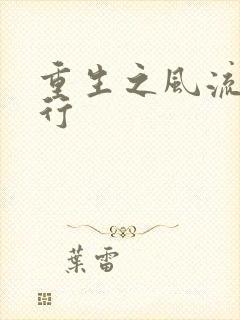 重生之風流
行
葉雷